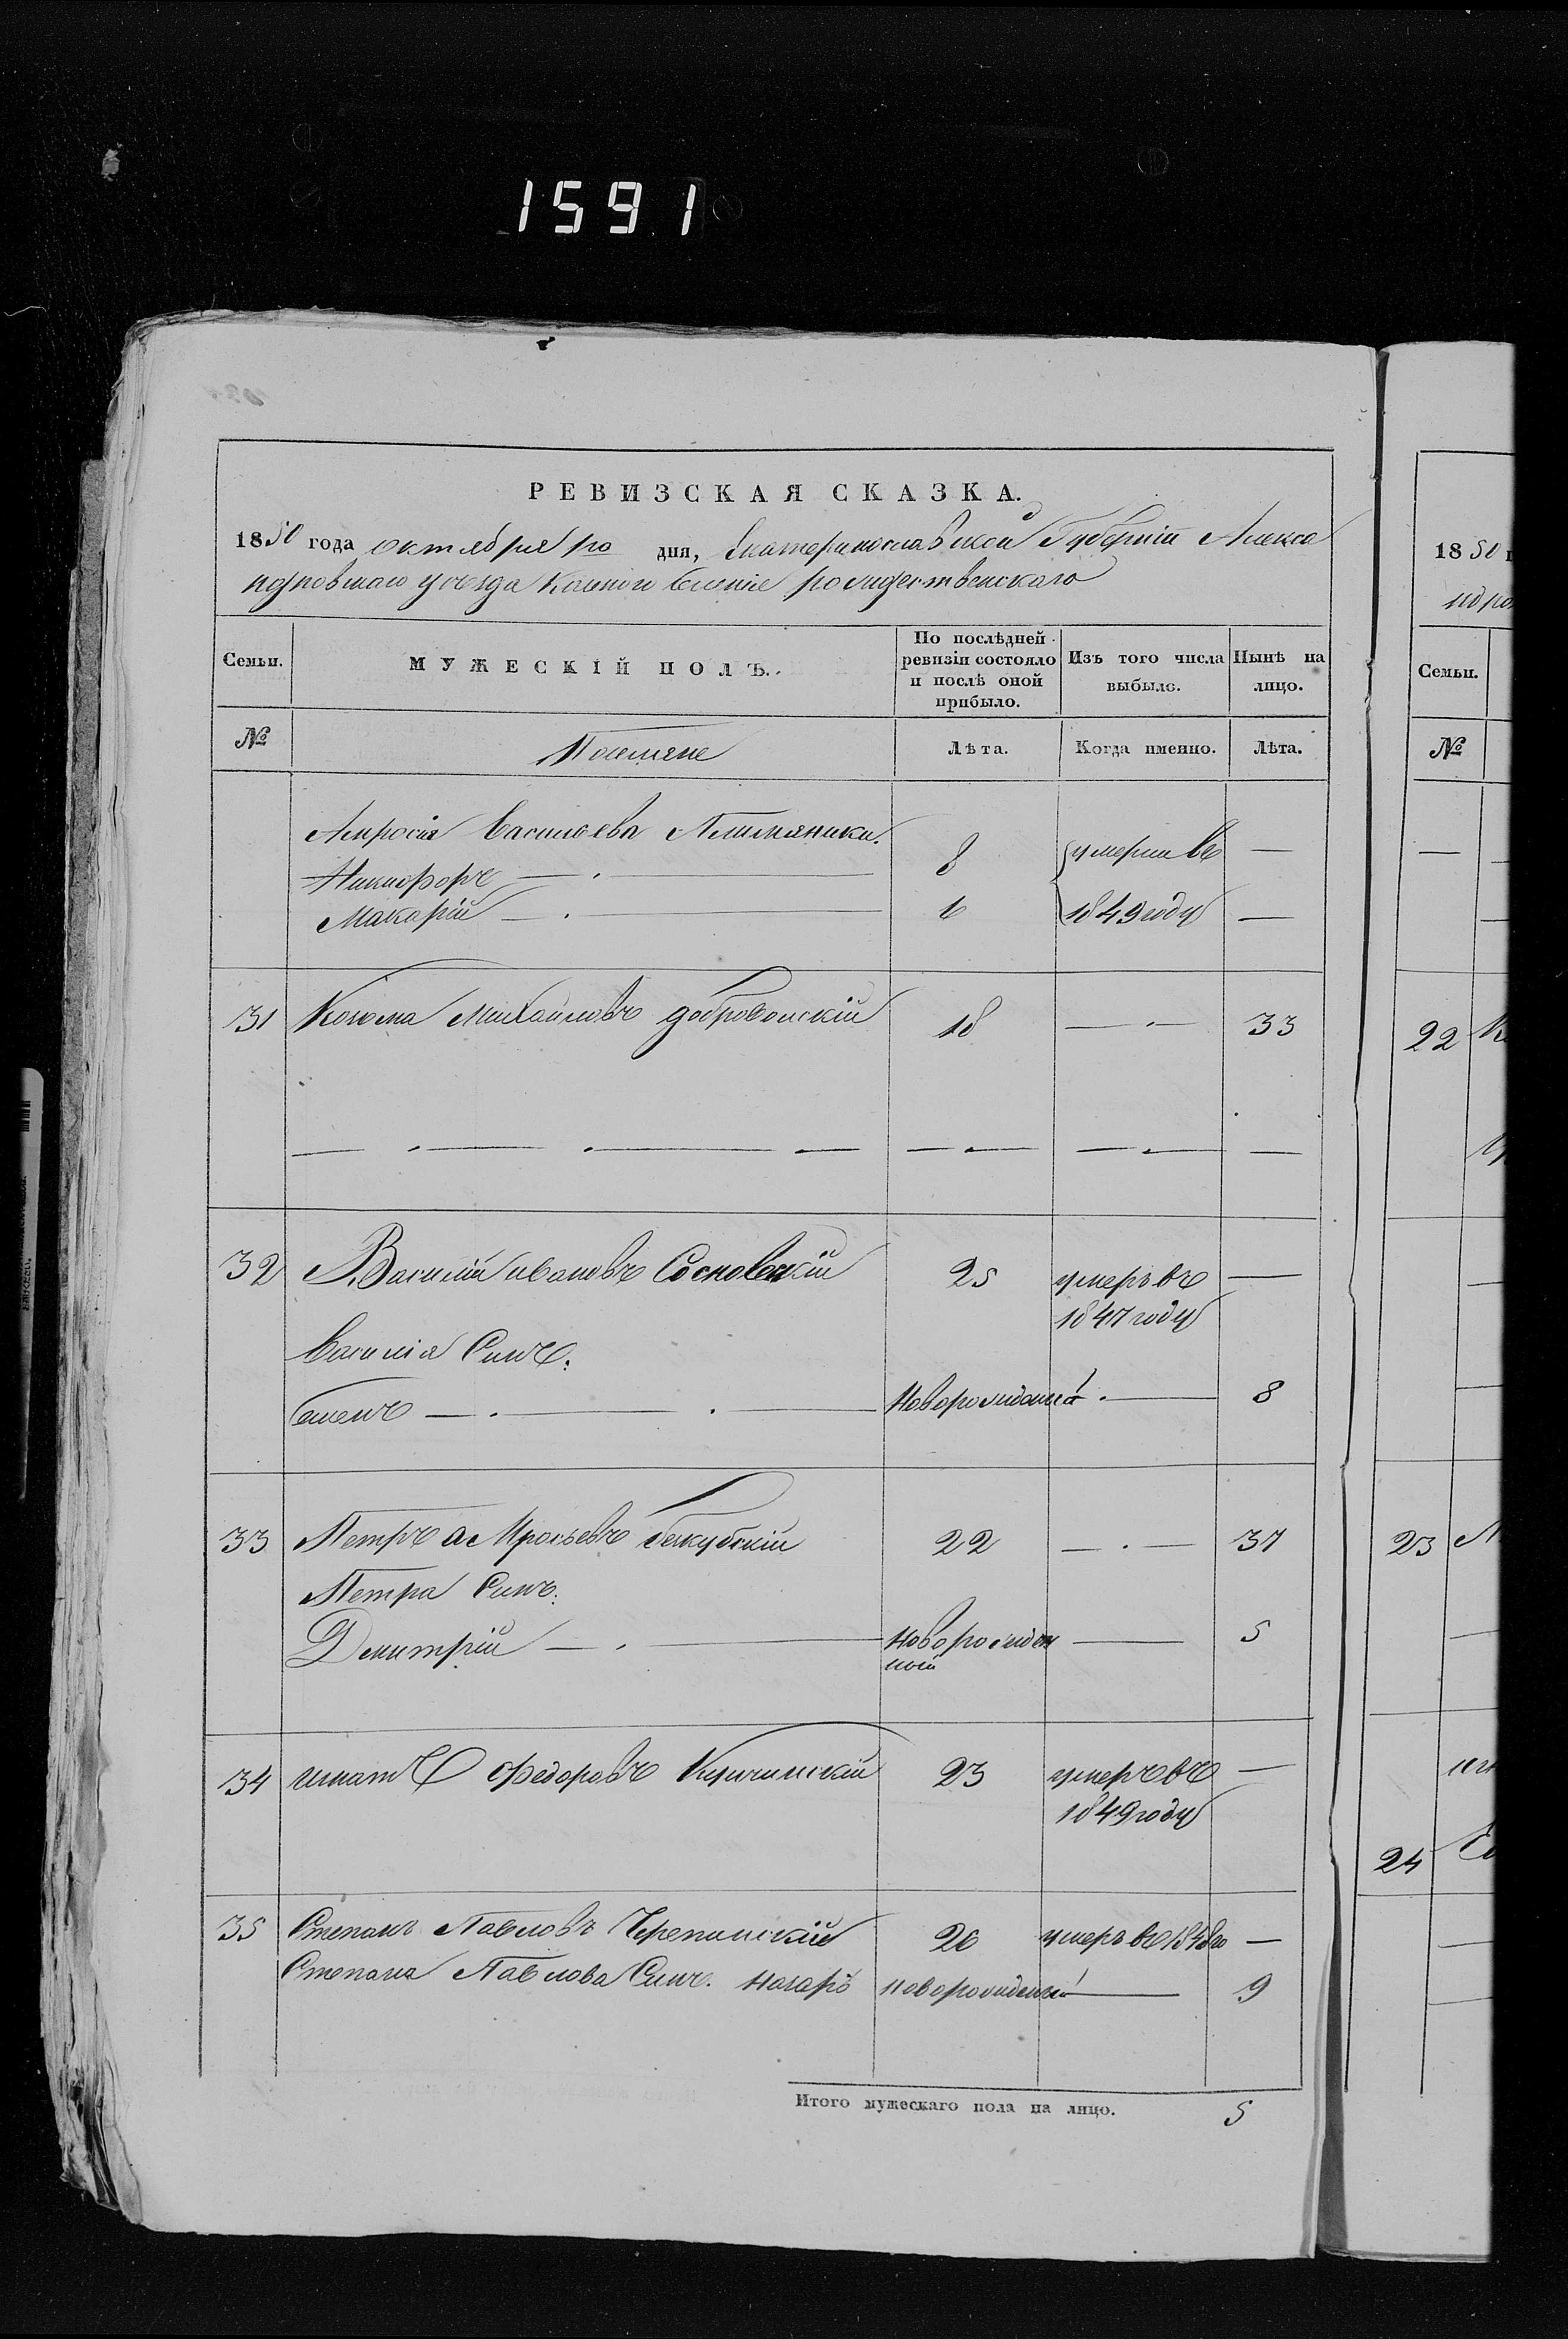 1591
РЕВИЗСКАЯ СКАЗКА.
1850 года октября дня, Екатеринославской Губернiи Алекса
ндровскаго уѣзда рождественскаго
Семьи. МУЖЕСКIЙ ПОЛЪ. По послѣдней ревизiи состояло и послѣ оной прибыло. Изъ того числа выбыло. Нынѣ на лицо.
№ Поселяне Лѣта. Когда именно. Лѣта.
Амросiя Васильева Племяники.
Никифоръ — . — 8 умерли въ —
Макарiй — . — 6 1849 году —
31 Козьма Михайловъ добровольскiй 18 — . — 33
32 Василiй ивановъ Сосновскiй 25 умеръ въ —
1847 году
Василiя Сынъ.
Семенъ — . — . — Новорожденый . — 8
33 Петръ аМросьевъ 22 — . — 37
Петра Сынъ.
Дмитрiй — . — новорожден — 5
ный
34 игнатъ Федоровъ 23 умеръ въ —
1849 году
35 Степанъ Павловъ 20 умеръ въ 1848го —
Степана Павлова Сынъ. назаръ новорожденый — 9
Итого мужескаго пола на лицо. 5
1850
ндро
Семьи.
№
22
23
24